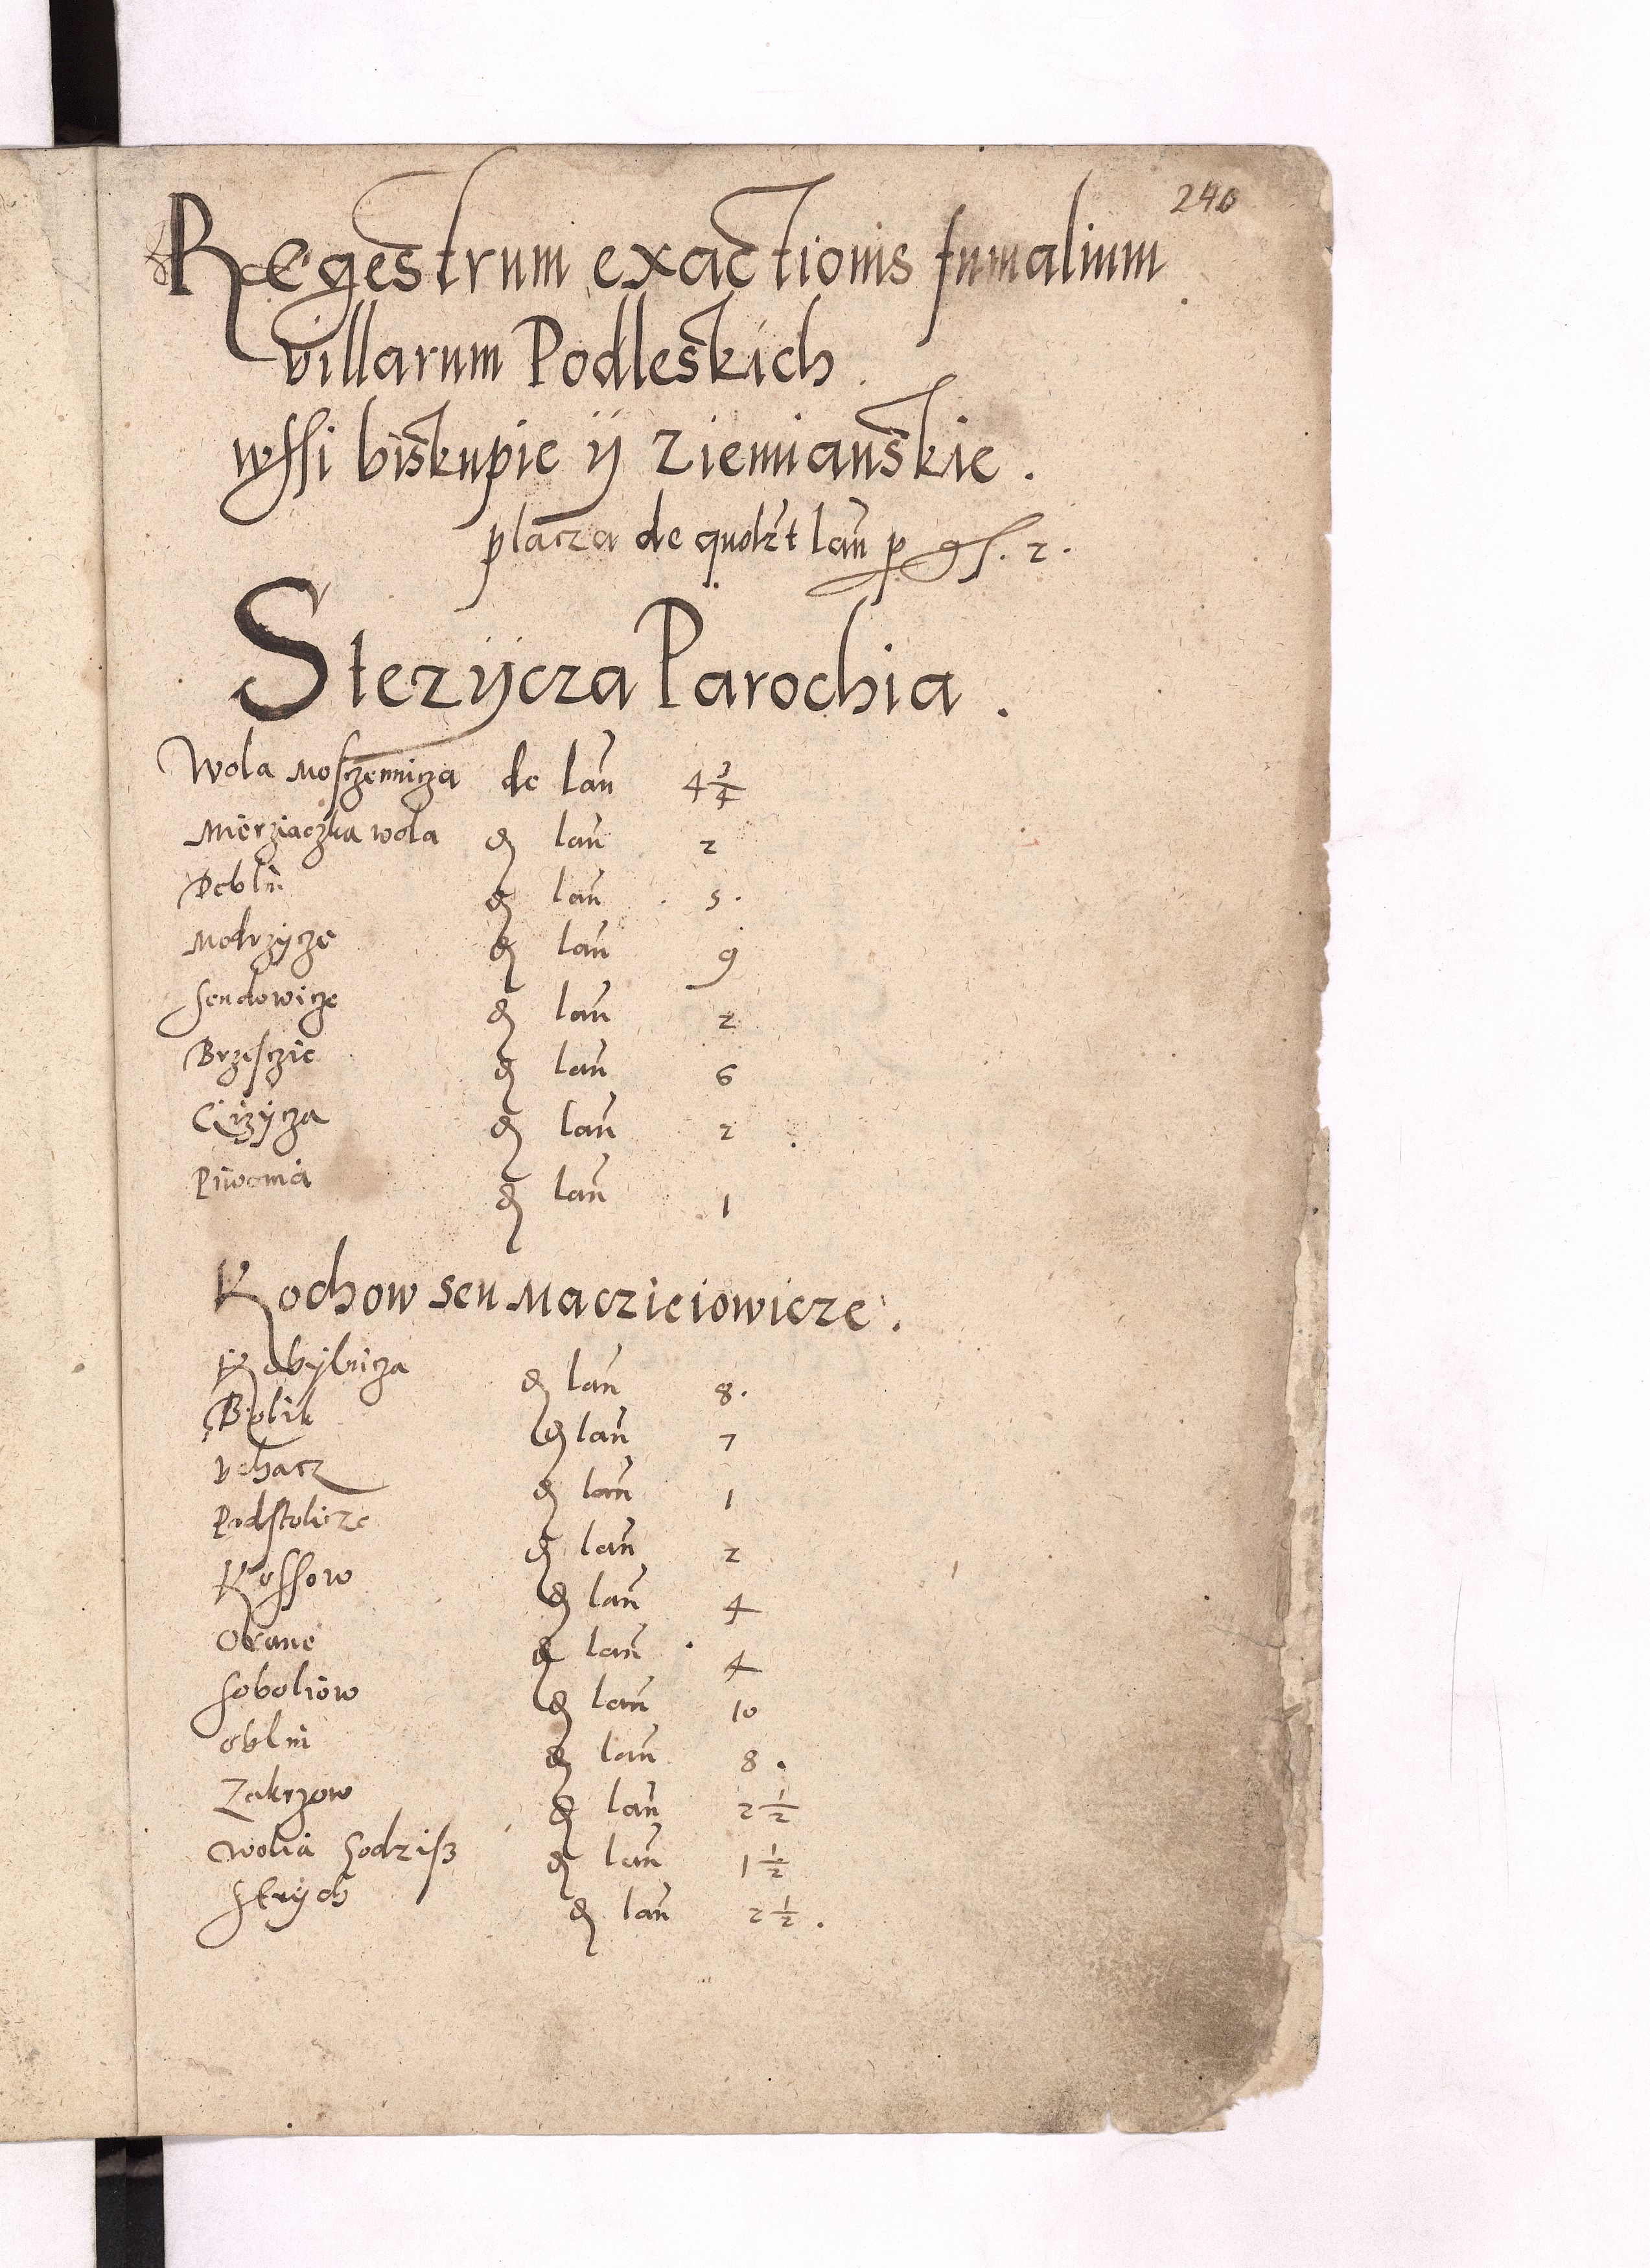 240
Regestrum exactionis fumalium
villarum Podleskich.
wssi biskupie ÿ ziemianskie.
placza de quolzt lan p gs. 2.
Stezÿcza Parochia.
Wola Mosczennicza de lan 4 3/4
Mierziaczka wola d lan 2
Deblin d lan 5.
Modrzycze d lan 9
Sendowicze d lan 2
Brzesczie d lan 6
Cziżycza d lan 2
Piwonia d lan 1
Kochow seu Macziciowicze.
Kobylnicza d lan 8.
Polik d lan 7
Vchacz d lan 1
Podstolicze d lan 2
Kossow d lan 4
Orane d lan 4
Soboliow d lan 10
Oblin d lan 8.
Zakrzow d lan 2 1/2
Wolia Godzisz d lan 1 1/2
Strych d lan 2 1/2.